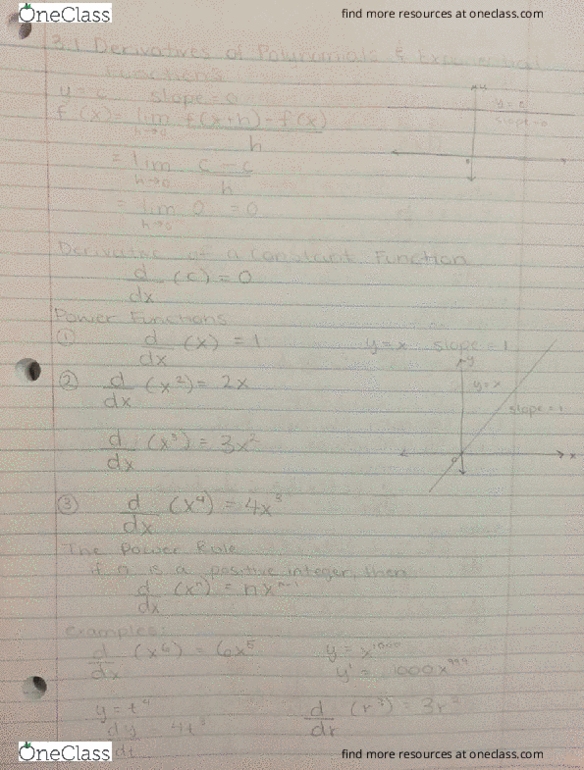 OneClass
find more resources at oneclass.com
3.1 Derivatives of Polynomials & Exponential
Functions
y = c slope = 0
f'(x) = lim f(x+h) - f(x)
h→0 h
= lim c - c
h→0 h
= lim 0 = 0
h→0
y
y = c
slope = 0
Derivative of a Constant Function
d (c) = 0
dx
Power Functions
① d (x) = 1
dx
y = x slope = 1
y
y = x
slope = 1
x
② d (x²) = 2x
dx
d (x³) = 3x²
dx
③ d (x⁴) = 4x³
dx
The Power Rule
if n is a positive integer, then
d (xⁿ) = nxⁿ⁻¹
dx
examples:
d (x⁶) = 6x⁵
dx
y = x¹⁰⁰⁰
y' = 1000x⁹⁹⁹
y = t⁴
dy = 4t³
dt
d (r³) = 3r²
dr
OneClass
find more resources at oneclass.com